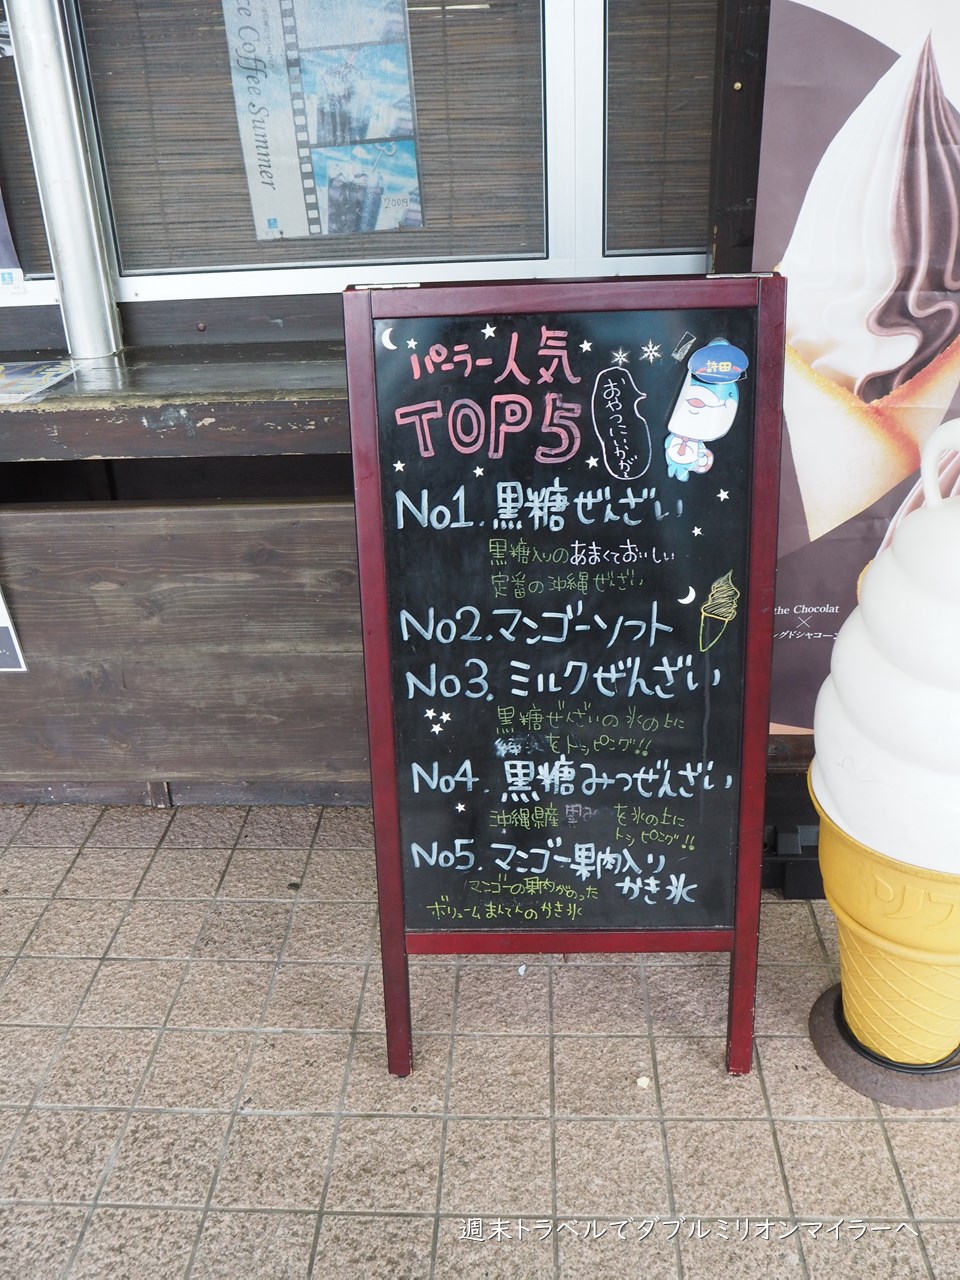 ce Coffee Summer
2009
パーラー人気
TOP5
おやつにいかが?
許田
No1.黒糖ぜんざい
黒糖入りのあまくておいしい
定番の沖縄ぜんざい
No2.マンゴーソフト
No3.ミルクぜんざい
黒糖ぜんざいの氷の上に
練 をトッピング!!
No4.黒糖みつぜんざい
沖縄県産 黒み を氷の上に
トッピング!!
No5.マンゴー果肉入り
かき氷
マンゴーの果肉がのった
ボリュームまんてんのかき氷
the Chocolat
×
ングドシャコーン
ソフ
週末トラベルでダブルミリオンマイラーへ